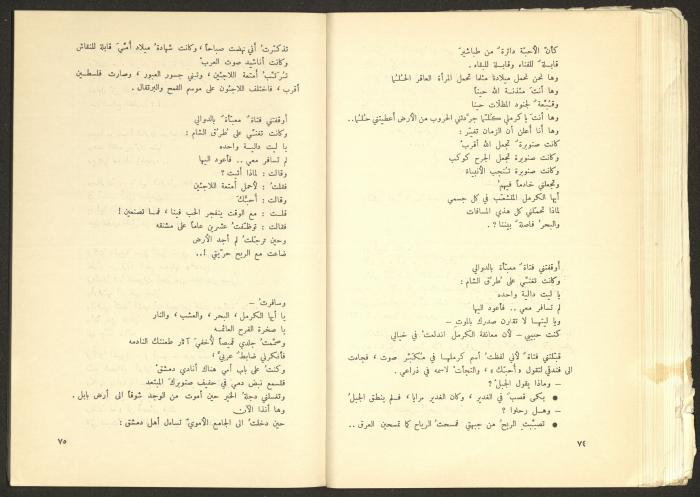 كأنّ الأحبّة دائرة ٌ من طباشير َ
قابلة ٌ للفناء وقابلة للبقاء .
وها نحن نحمل ميلادنا مثلما تحمل المرأة العاقر الحُلمَا
وها أنت مئذنة الله حيناً
وقبّعة ٌ لجنود المظلات حينا
وها أنت يا كرملي كلّما جرّدتني الحروب من الأرض أعطيتني حُلُما..
وها أنا أعلن أن الزمان تغيّر :
كانت صنوبرة ٌ تجعل الله أقرب ْ
وكانت صنوبرة تجعل الجرح كوكب
وكانت صنوبرة تنجب الأنبياء
وتجعلني خادماً فيهمُ
أيها الكرمل المتشعّب في كل جسمي
لماذا تحمّلني كل هذي المسافات
والبحرُ فاصلة ٌ بيننا ؟ .
أوقفتني فتاة ٌ معبّأة بالدوالي
وكانت تغنّي على طُرُق الشام :
يا ليت دالية واحده
لم تسافر معي .. فأعود اليها
ويا ليتهــا لا تقارن صدرك بالموت ــ
كنت حبيبي ــ لأن معانقة الكرمل اندلعتْ في خيالي
قبّلتني فتاة ٌ لأني لفظتُ أسم كرملهـا في مُكبّر صوت ، فجاءت
الى فندقي لتقول « أحبّك » ، والتجأت لاسمه في ذراعي .
ــ وماذا يقول الجبل ُ ؟
● بكى قصب ٌ في الغدير ، وكان الغدير مرايا ، فلم ينطق الجبلُ
ــ وهــل رحلوا ؟
● تصبّبت الريحُ من جبهتي فمسحتُ الرياح كما تمسحين العرق ..
٧٤
تذكّرتُ أني نهضت صباحاً ، وكانت شهادةُ ميلاد أمّيَ قابلة للنقاش
وكانت أناشيد صوت العربْ
تُرتّبُ أمتعة اللاجئين ، وتبني جسور العبور ، وصارت فلسطين
أقرب ، فاختلف اللاجئون على موسم القمح والبرتقال .
أوقفتني فتاة ٌ معبّأة ٌ بالدوالي
وكانت تغنّي على طُرُق الشام :
يا ليت داليــة واحده
لم تسافر معي .. فأعود اليها
وقالت : لماذا أتيت ؟
فقلتُ : لأحمل أمتعة اللاجئين
وقالت : أحبّك َ
قلــت : مع الوقت ينفجر الحب فينا ، فمــا تصنعين !
فقالت : توظّفتُ عشرين عاماً على مشنقه
وحين ترجّلتُ لم أجد الأرض
ضاعت مع الريح حرّيتي !..
وسافرتُ ــ
يا أيها الكرمل ، البحر ، والعشب ، والنار
يا صخرة الفرح العائمه
وصمّمتُ جلدي قميصاً لأخفيَ آثار طعنتك النادمه
فأنكرني ضابط ٌ عربيٌّ ،
وكنت على باب أمي هناك أنادي دمشق ُ
فلسمع نبض دمي في حفيف صنوبرك المبتعد
وتغسلني دجلةُ الخير حين أموت من الوجد شوقاً الى أرض بابل .
وها أنذا الآن
حين دخلتُ الى الجامع الأمويّ تساءل أهل دمشق :
٧٥